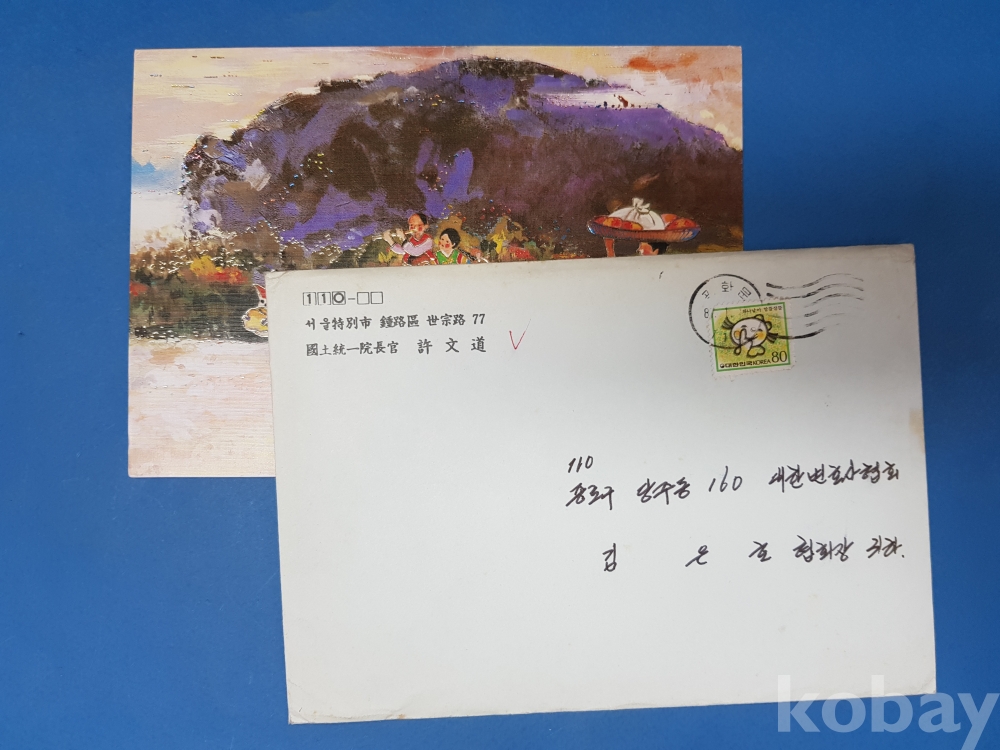 110-□□
서울特別市 鍾路區 世宗路 77
國土統一院長官 許文道
광화문
대한민국KOREA 80
110
종로구 당주동 160 대한변호사협회
김은호 협회장 귀하.
kobay